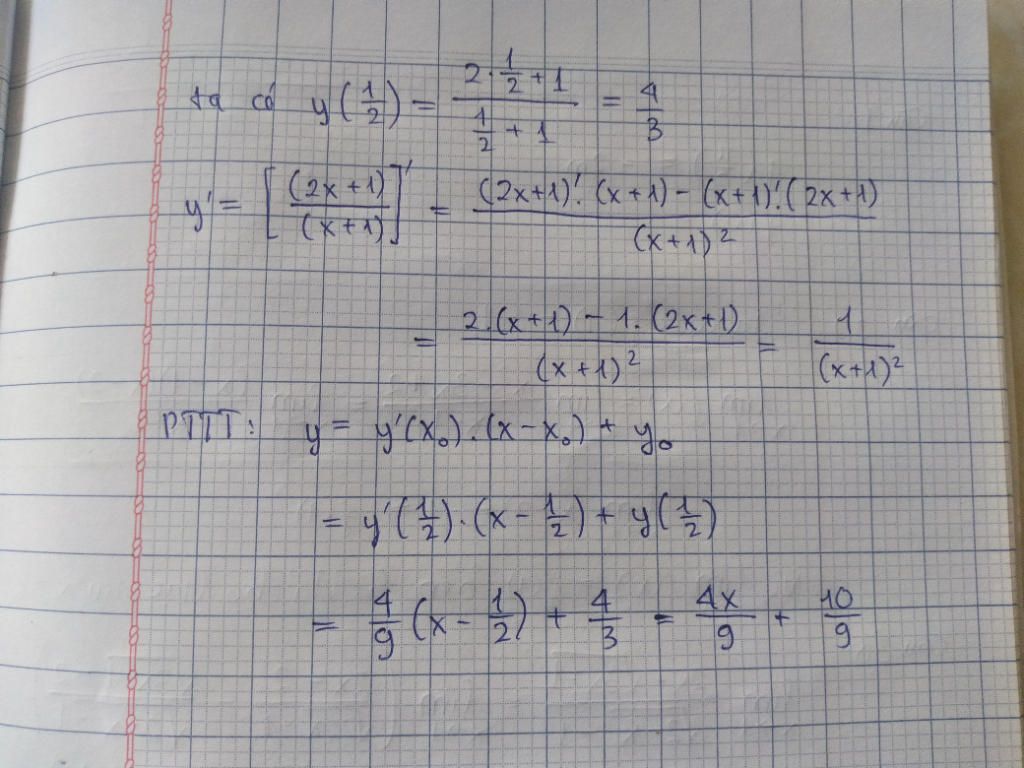 ta có y(1/2) = (2·1/2+1)/(1/2+1) = 4/3
y' = [(2x+1)/(x+1)]' = ((2x+1)'.(x+1) - (x+1)'.(2x+1))/(x+1)²
= (2.(x+1) - 1.(2x+1))/(x+1)² = 1/(x+1)²
PTTT: y = y'(x₀).(x-x₀) + y₀
= y'(1/2).(x-1/2) + y(1/2)
= 4/9(x-1/2) + 4/3 = 4x/9 + 10/9